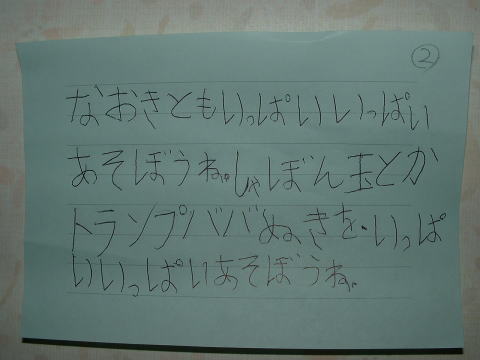 ②
なおきともいっぱいいっぱい
あそぼうね。しゃぼん玉とか
トランプババぬきを・いっぱ
いいっぱいあそぼうね。